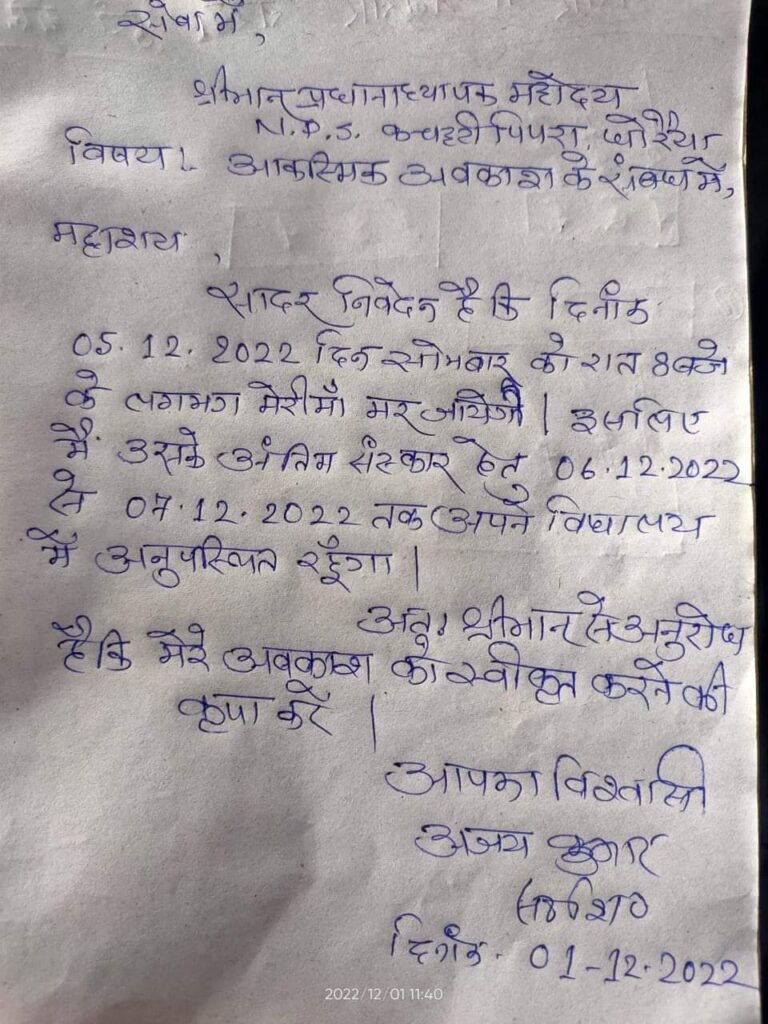 सेवा में,
श्रीमान् प्रधानाध्यापक महोदय
N.P.S. कचहरी पिपरा, धोरैया
विषय:- आकस्मिक अवकाश के संबंध में,
महाशय,
सादर निवेदन है कि दिनांक
05.12.2022 दिन सोमबार को रात 8 बजे
के लगभग मेरी माँ मर जायेगी। इसलिए
मैं उसके अंतिम संस्कार हेतु 06.12.2022
से 07.12.2022 तक अपने विद्यालय
में अनुपस्थित रहूँगा।
अतः श्रीमान् से अनुरोध
है कि मेरे अवकाश को स्वीकृत करने की
कृपा करें।
आपका विश्वासी
अजय कुमार
दिनांक - 01-12-2022
2022/12/01 11:40